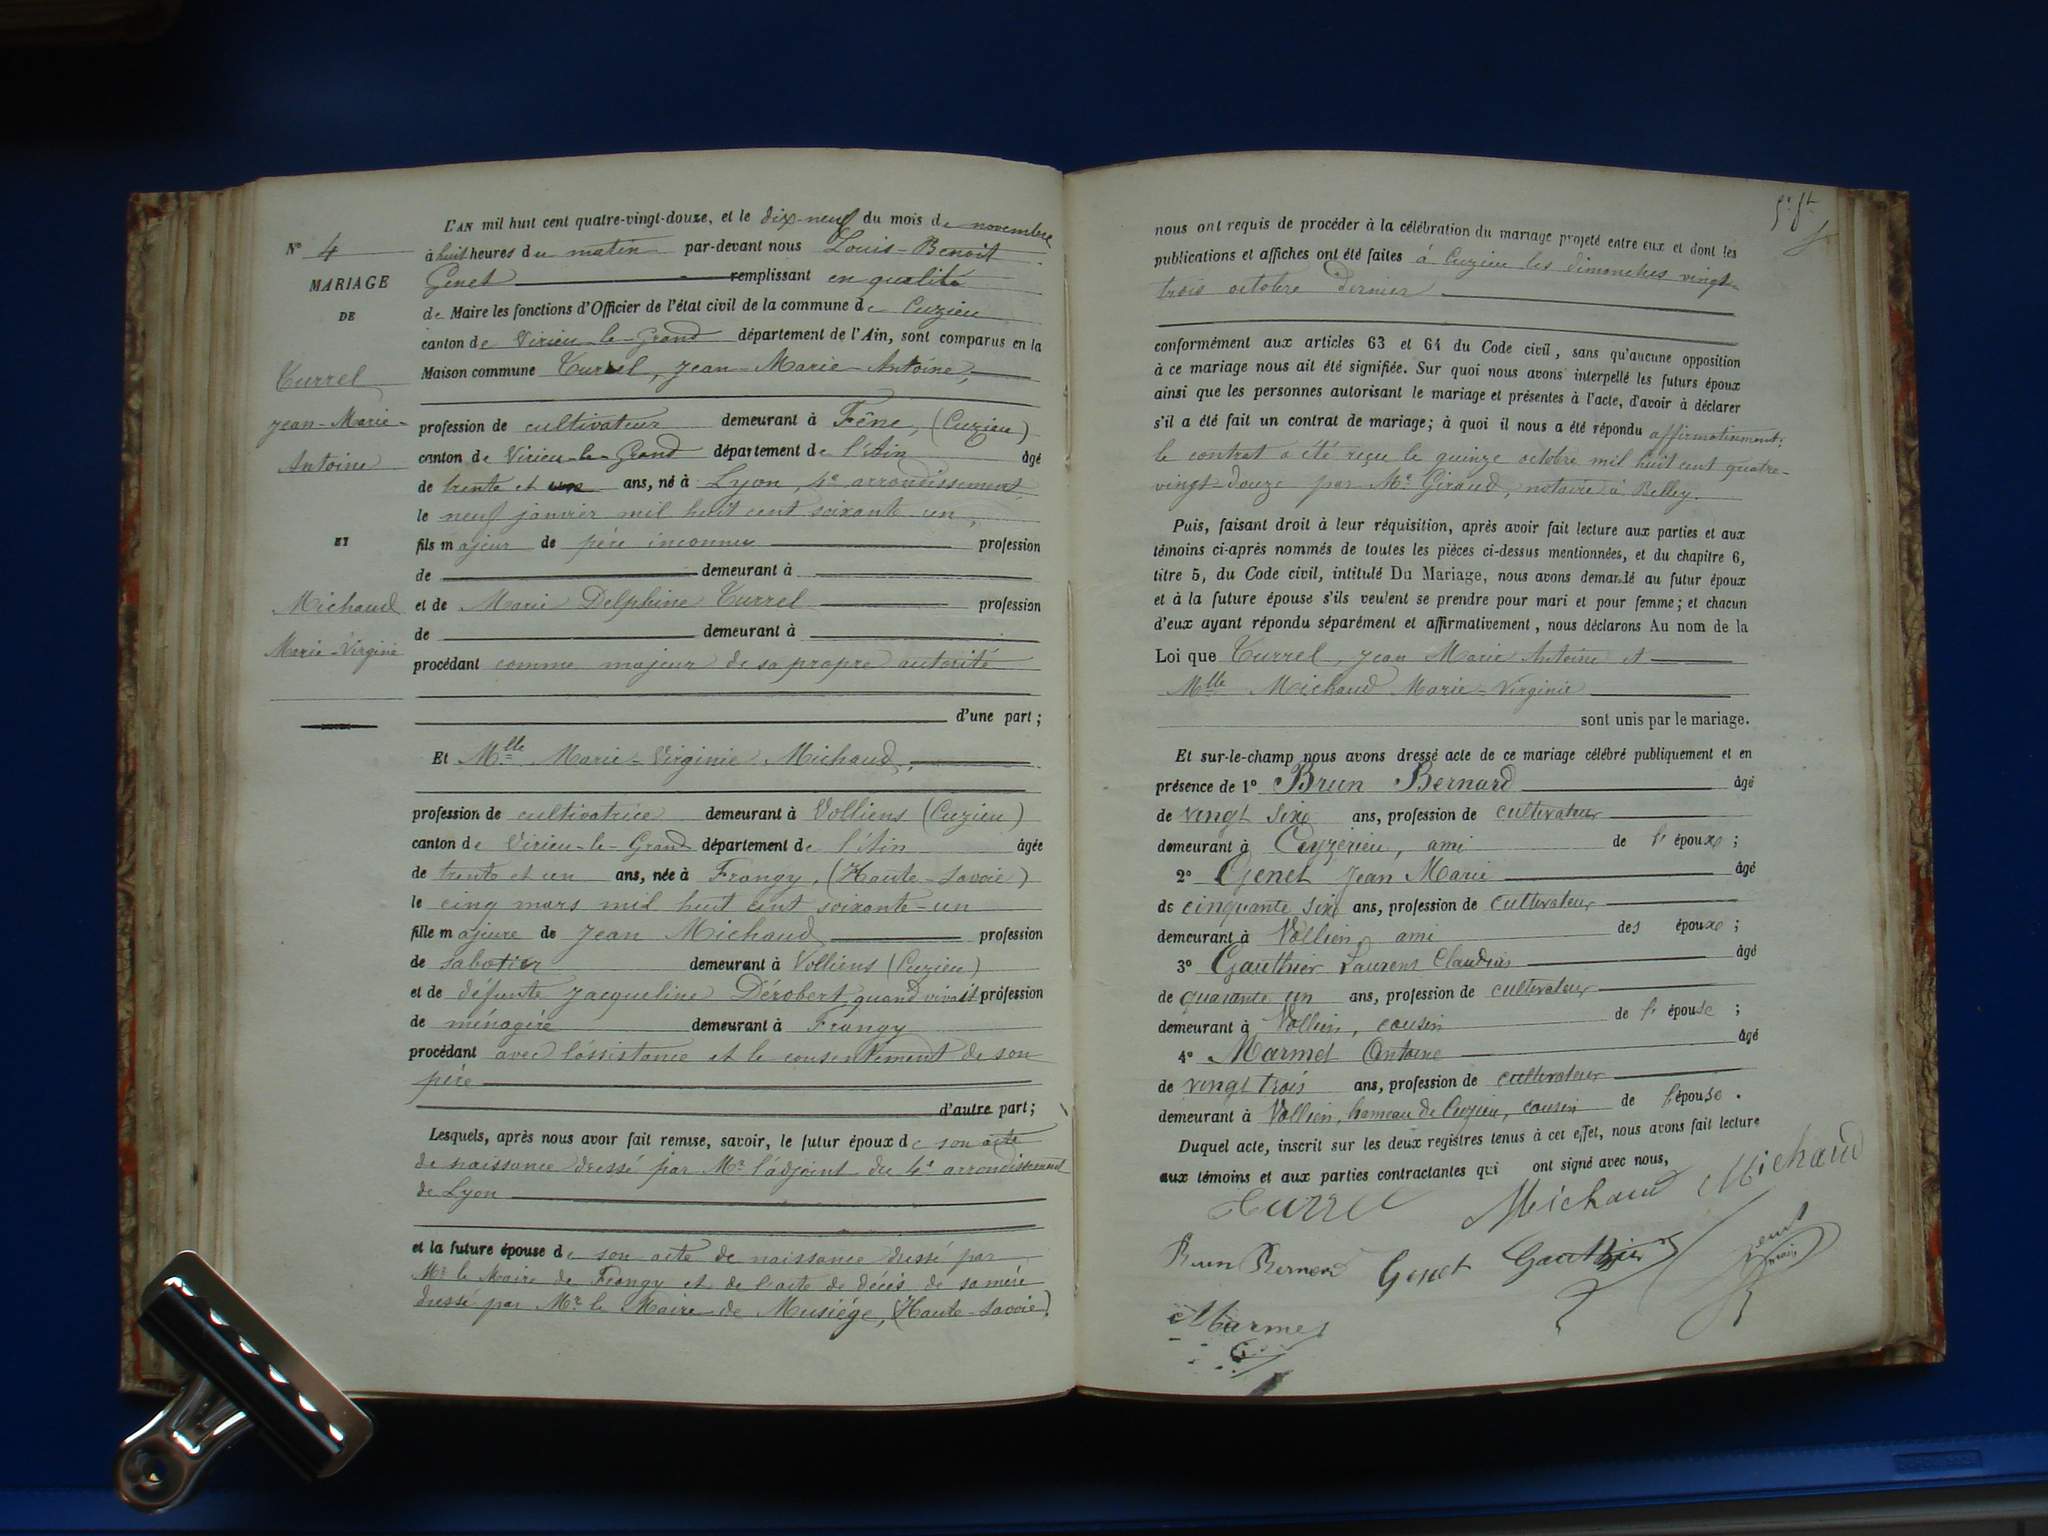 L'AN mil huit cent quatre-vingt-douze, et le dix-neuf du mois de novembre
N° 4
à huit heures du matin par-devant nous Louis-Benoit
Genet remplissant en qualité
MARIAGE
DE
de Maire les fonctions d'Officier de l'état civil de la commune de Cuzieu
canton de Virieu-le-Grand département de l'Ain, sont comparus en la
Maison commune Turrel, Jean-Marie-Antoine,
Turrel
Jean-Marie-
Antoine
profession de cultivateur demeurant à Fêne, (Cuzieu)
canton de Virieu-le-Grand département de l'Ain âgé
de trente et un ans, né à Lyon, 4e arrondissement,
le neuf janvier mil huit cent soixante-un,
ET
fils majeur de père inconnu profession
de demeurant à
Michaud
Marie-Virginie
et de Marie Delphine Turrel profession
de demeurant à
procédant comme majeur de sa propre autorité
d'une part;
Et Mlle Marie-Virginie Michaud,
profession de cultivatrice demeurant à Volliens (Cuzieu)
canton de Virieu-le-Grand département de l'Ain âgée
de trente et un ans, née à Frangy, (Haute-Savoie)
le cinq mars mil huit cent soixante-un
fille majeure de Jean Michaud profession
de sabotier demeurant à Volliens (Cuzieu)
et de défunte Jacqueline Dérobert, quand vivait profession
de ménagère demeurant à Frangy
procédant avec l'assistance et le consentement de son
père
d'autre part;
Lesquels, après nous avoir fait remise, savoir, le futur époux de son acte
de naissance dressé par Mr l'adjoint du 4e arrondissement
de Lyon
et la future épouse de son acte de naissance dressé par
Mr le Maire de Frangy et de l'acte de décès de sa mère
dressé par Mr le Maire de Musiège, (Haute-Savoie)
nous ont requis de procéder à la célébration du mariage projeté entre eux et dont les
publications et affiches ont été faites à Cuzieu les dimanches vingt-
trois octobre dernier
conformément aux articles 63 et 64 du Code civil, sans qu'aucune opposition
à ce mariage nous ait été signifiée. Sur quoi nous avons interpellé les futurs époux
ainsi que les personnes autorisant le mariage et présentes à l'acte, d'avoir à déclarer
s'il a été fait un contrat de mariage; à quoi il nous a été répondu affirmativement:
le contrat a été reçu le quinze octobre mil huit cent quatre-
vingt-douze par Me Giraud, notaire à Belley.
Puis, faisant droit à leur réquisition, après avoir fait lecture aux parties et aux
témoins ci-après nommés de toutes les pièces ci-dessus mentionnées, et du chapitre 6,
titre 5, du Code civil, intitulé Du Mariage, nous avons demandé au futur époux
et à la future épouse s'ils veulent se prendre pour mari et pour femme; et chacun
d'eux ayant répondu séparément et affirmativement, nous déclarons Au nom de la
Loi que Turrel, Jean Marie Antoine et
Mlle Michaud Marie-Virginie
sont unis par le mariage.
Et sur-le-champ nous avons dressé acte de ce mariage célébré publiquement et en
présence de 1° Brun Bernard âgé
de vingt six ans, profession de cultivateur
demeurant à Ceyzérieu, ami de l'époux;
2° Genet Jean Marie âgé
de cinquante six ans, profession de cultivateur
demeurant à Vollien, ami des époux;
3° Gauthier Laurent Claudius âgé
de quarante un ans, profession de cultivateur
demeurant à Vollien, cousin de l'épouse;
4° Marmet Antoine âgé
de vingt trois ans, profession de cultivateur
demeurant à Vollien, hameau de Cuzieu, cousin de l'épouse.
Duquel acte, inscrit sur les deux registres tenus à cet effet, nous avons fait lecture
aux témoins et aux parties contractantes qui ont signé avec nous,
Turrel Michaud Michaud
Brun Bernard Genet Gauthier Genet
Marmet